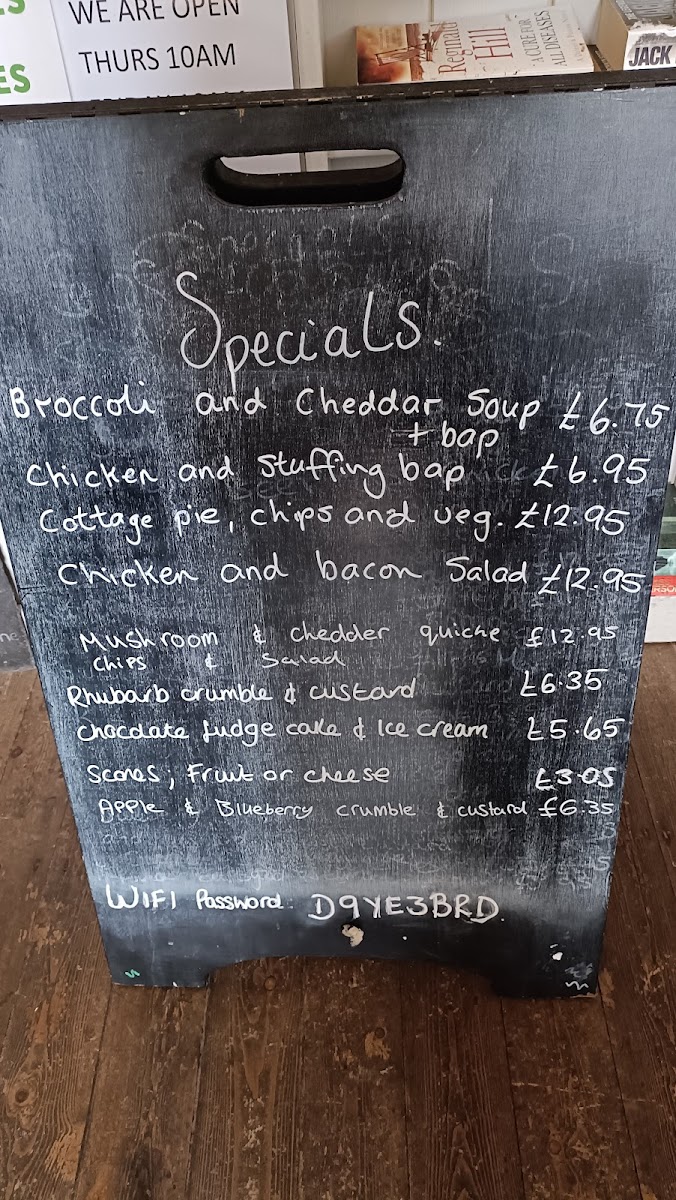 ES
WE ARE OPEN
THURS 10AM
Reginald
Hill
A CURE FOR
ALL DISEASES
JACK
Specials.
Broccoli and Cheddar Soup £6.75
+ bap
Chicken and stuffing bap £6.95
Cottage pie, chips and veg. £12.95
Chicken and bacon Salad £12.95
Mushroom & chedder quiche £12.95
chips & Salad
Rhubarb crumble & custard £6.35
Chocolate fudge cake & Ice cream £5.65
Scones, Fruit or cheese £3.05
Apple & Blueberry crumble & custard £6.35
WIFI Password: D9YE3BRD.